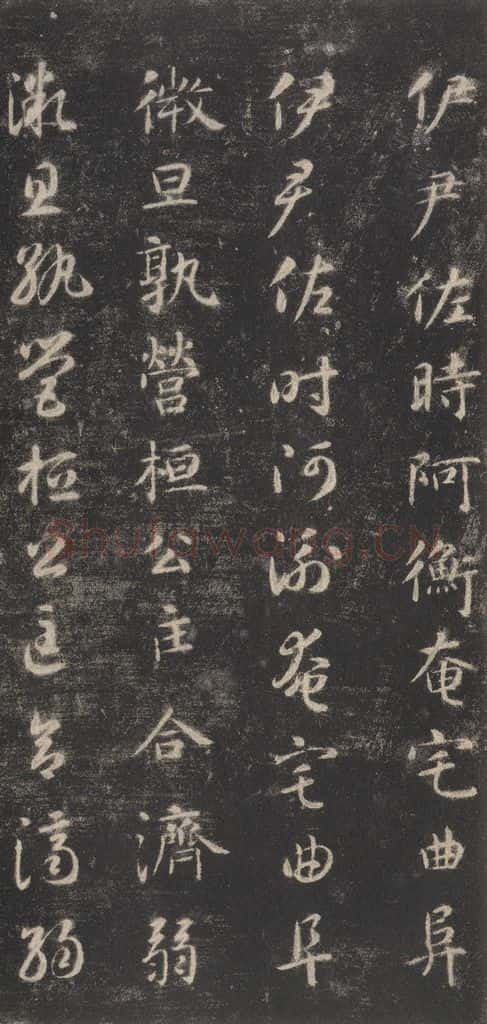 伊尹佐時阿衡奄宅曲阜
伊尹佐時阿衡奄宅曲阜
微旦孰營桓公匡合濟弱
微旦孰營桓公匡合濟弱
Shufawang.CN